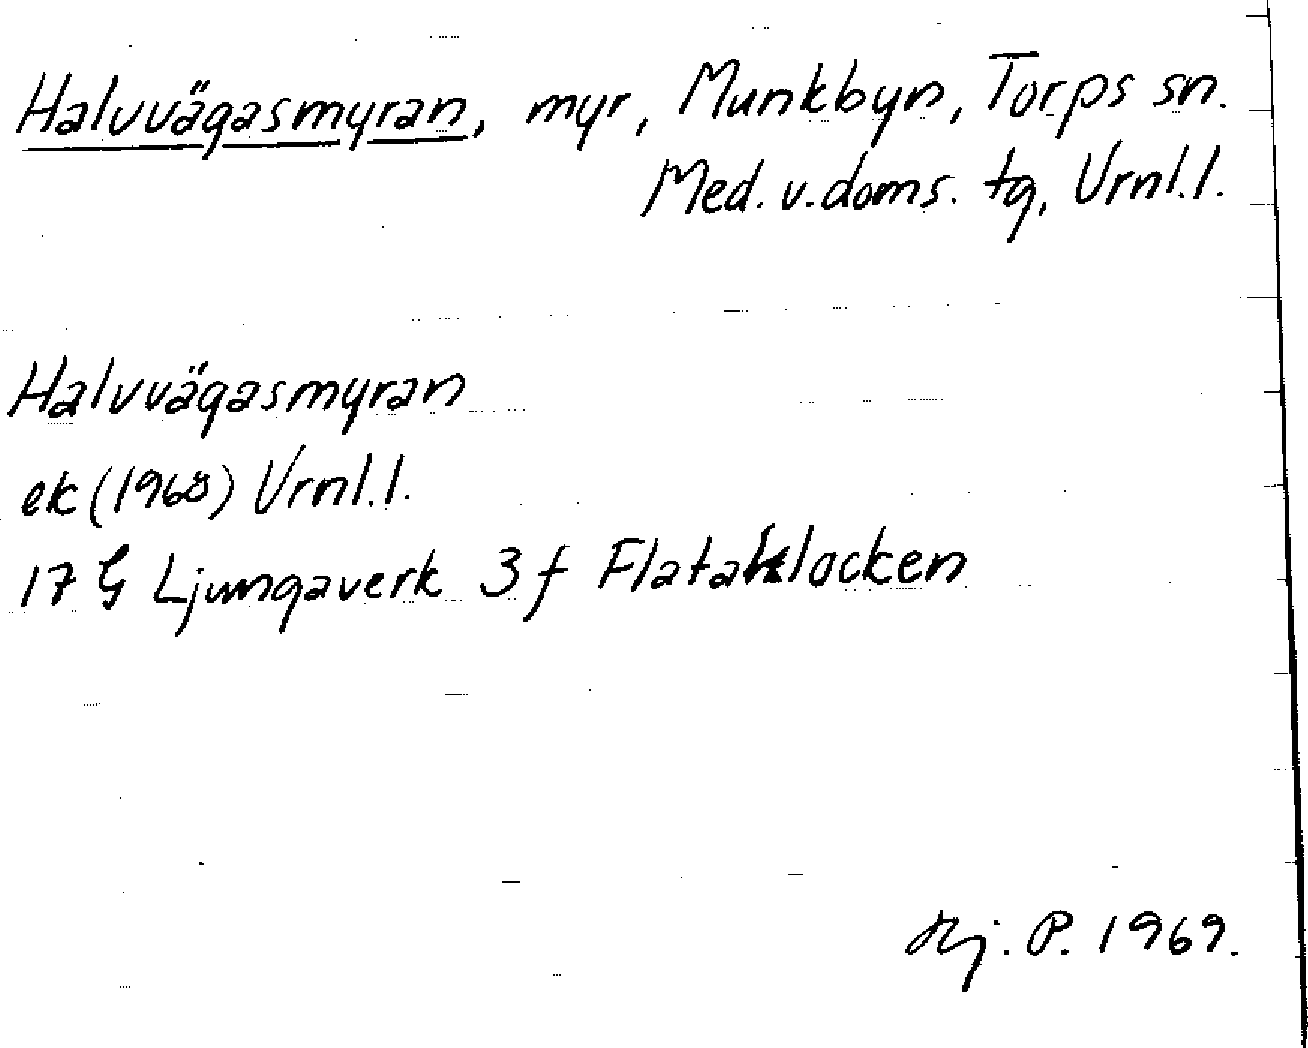 Halvvägasmyran, myr, Munkbyn, Torps sn.
Med. v. doms. tg, Vrnl. l.
Halvvägasmyran
ek (1968) Vrnl. l.
17 G Ljungaverk 3 f Flataklocken
Hj. P. 1969.